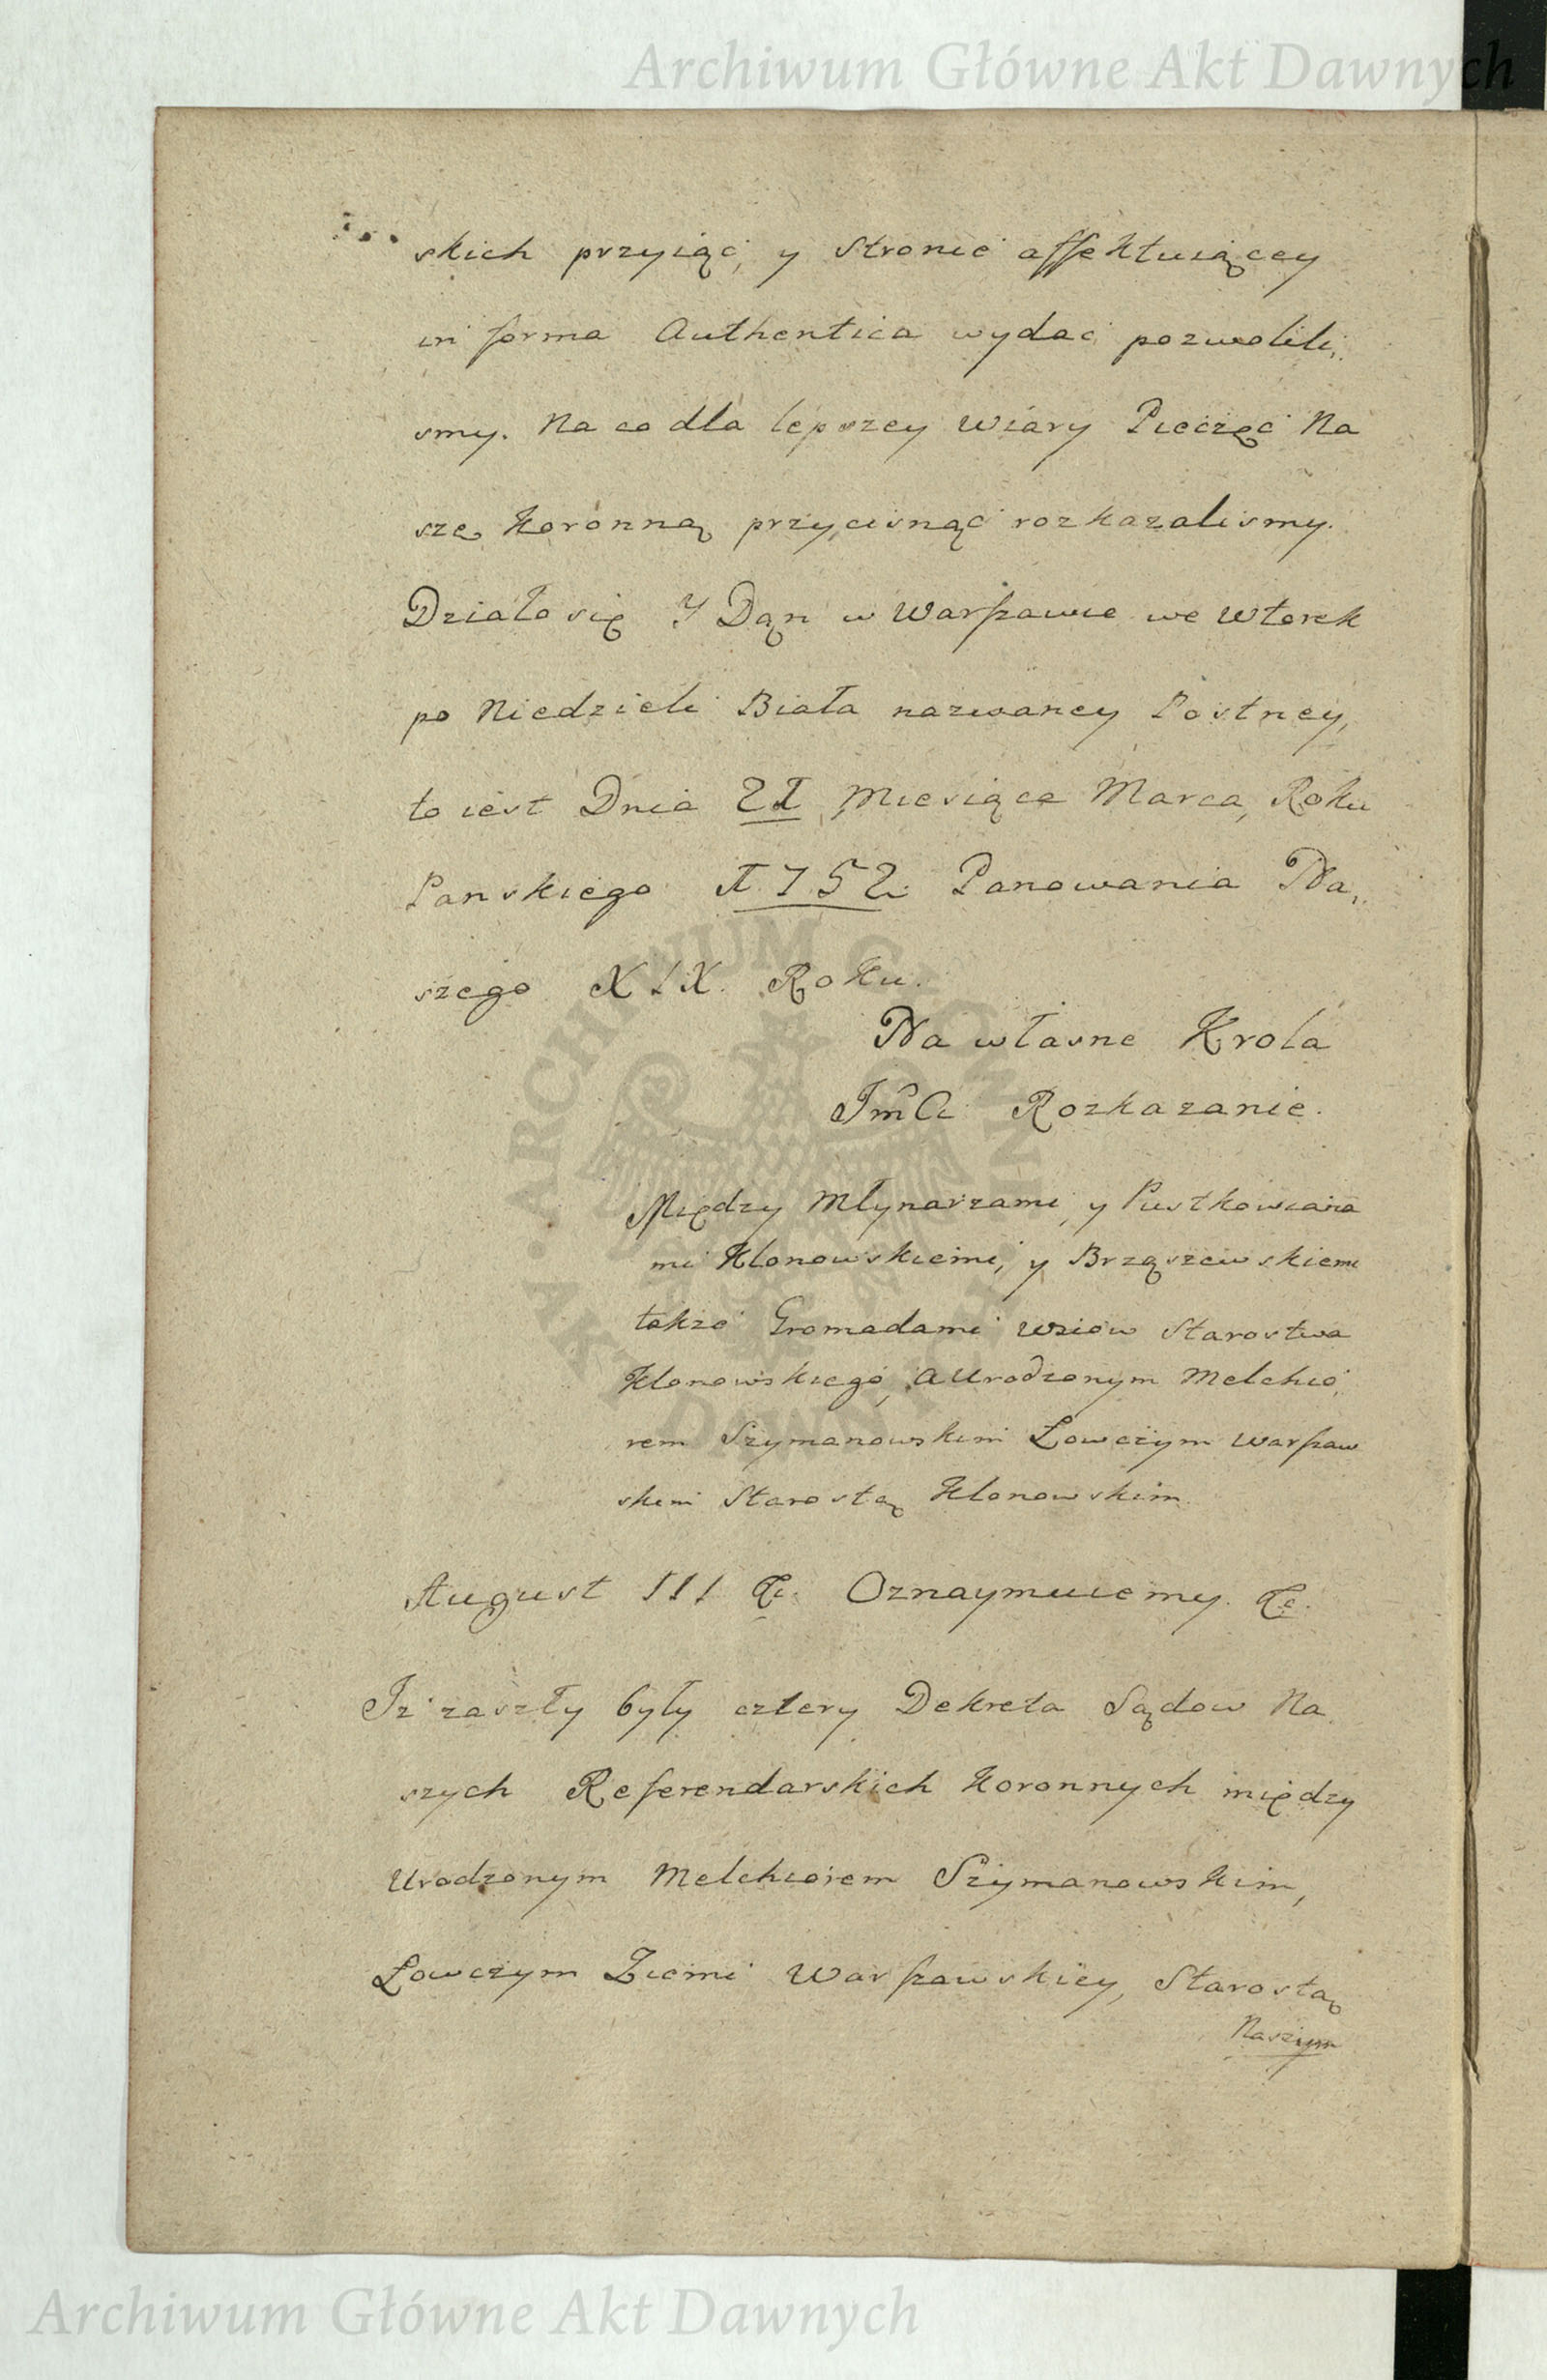 Archiwum Główne Akt Dawnych
skich przyiąć, y Stronie affektuiącey
in forma Authentica wydać pozwolili,,
smy. Na co dla lepszey wiary Pieczęć Na
szę Koronną przycisnąć rozkazalismy.
Działo się Y Dąn w Warszawie we Wtorek
po Niedzieli Biała nazwaney Postney,
to iest Dnia 21 Miesiąca Marca, Roku
Panskiego 1752. Panowania Na,,
szego XIX. Roku.
Na własne Krola
JmCi Rozkazanie.
Między Młynarzami, y Pustkowiana
mi Klonowskiemi, y Brząszewskiemi
także Gromadami wsiow Starostwa
Klonowskiego, a Urodzonym Melchio,
rem Szymanowskim Łowczym Warszaw
skim Starostą Klonowskim.
August III &c. Oznaymuiemy. &c.
Iż zaszły były cztery Dekreta Sądow Na
szych Referendarskich Koronnych między
Urodzonym Melchiorem Szymanowskim,
Łowczym Ziemi Warszawskiey, Starostą
Naszym
ARCHIWUM GŁÓWNE AKT DAWNYCH
Archiwum Główne Akt Dawnych